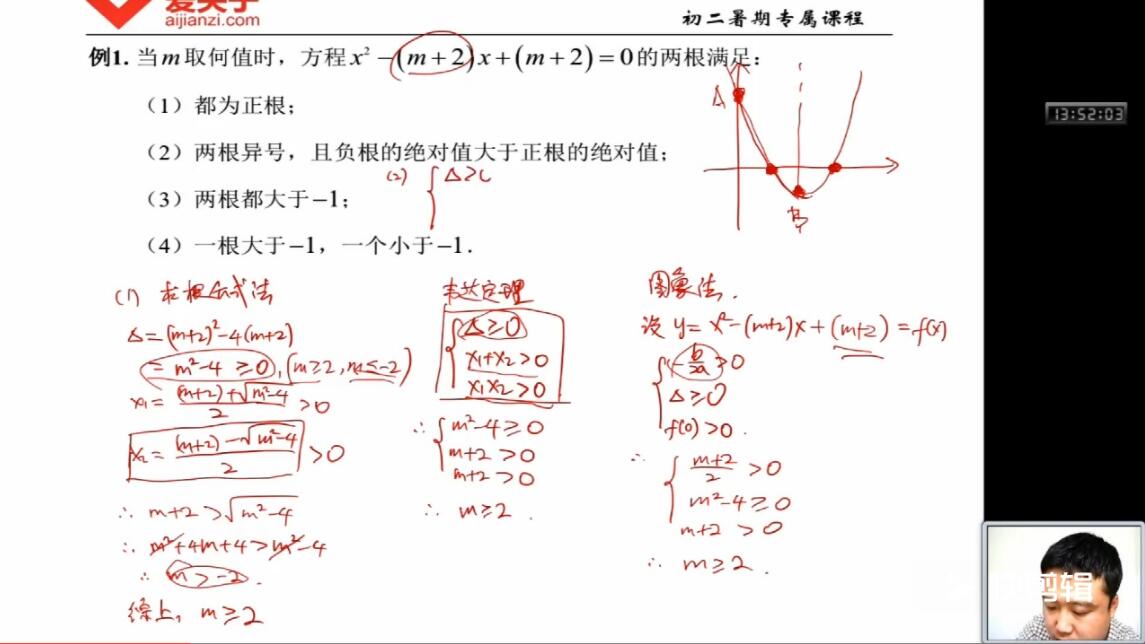 爱尖子
aijianzi.com
初二暑期专属课程
例1. 当m取何值时，方程x²-(m+2)x+(m+2)=0的两根满足：
（1）都为正根；
（2）两根异号，且负根的绝对值大于正根的绝对值；
（3）两根都大于-1；
（4）一根大于-1，一个小于-1．
13:52:03
(2) { Δ≥0
(1) 求根公式法
Δ=(m+2)²-4(m+2)
=m²-4≥0, (m≥2, m≤-2)
x₁=((m+2)+√(m²-4))/2>0
x₂=((m+2)-√(m²-4))/2>0
∴ m+2>√(m²-4)
∴ m²+4m+4>m²-4
∴ m>-2.
综上, m≥2
韦达定理
Δ≥0
x₁+x₂>0
x₁x₂>0
∴ m²-4≥0
m+2>0
m+2>0
∴ m≥2.
图象法.
设 y=x²-(m+2)x+(m+2)=f(x)
-b/2a>0
Δ≥0
f(0)>0.
∴ (m+2)/2>0
m²-4≥0
m+2>0
∴ m≥2.
剪辑